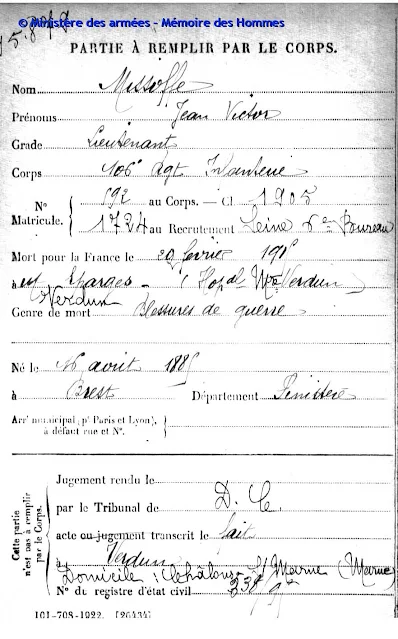 © Ministère des armées - Mémoire des Hommes
PARTIE À REMPLIR PAR LE CORPS.
Nom Missoffe
Prénoms Jean Victor
Grade Lieutenant
Corps 106e Rgt Infanterie
N° 592 au Corps. — Cl 1905
Matricule. 1724 au Recrutement Seine 6e Bureau
Mort pour la France le 20 février 1915
à Eparges - (Hopal Mre Verdun)
Verdun
Genre de mort Blessures de guerre
Né le 16 avril 1885
à Brest Département Finistère
Arrt municipal (pr Paris et Lyon),
à défaut rue et N°.
Cette partie n'est pas à remplir par le Corps.
Jugement rendu le
par le Tribunal de D. C.
acte ou jugement transcrit le fait
à Verdun
Domicile : Châlons s/ Marne (Marne)
N° du registre d'état civil
101-708-1922. [26434]